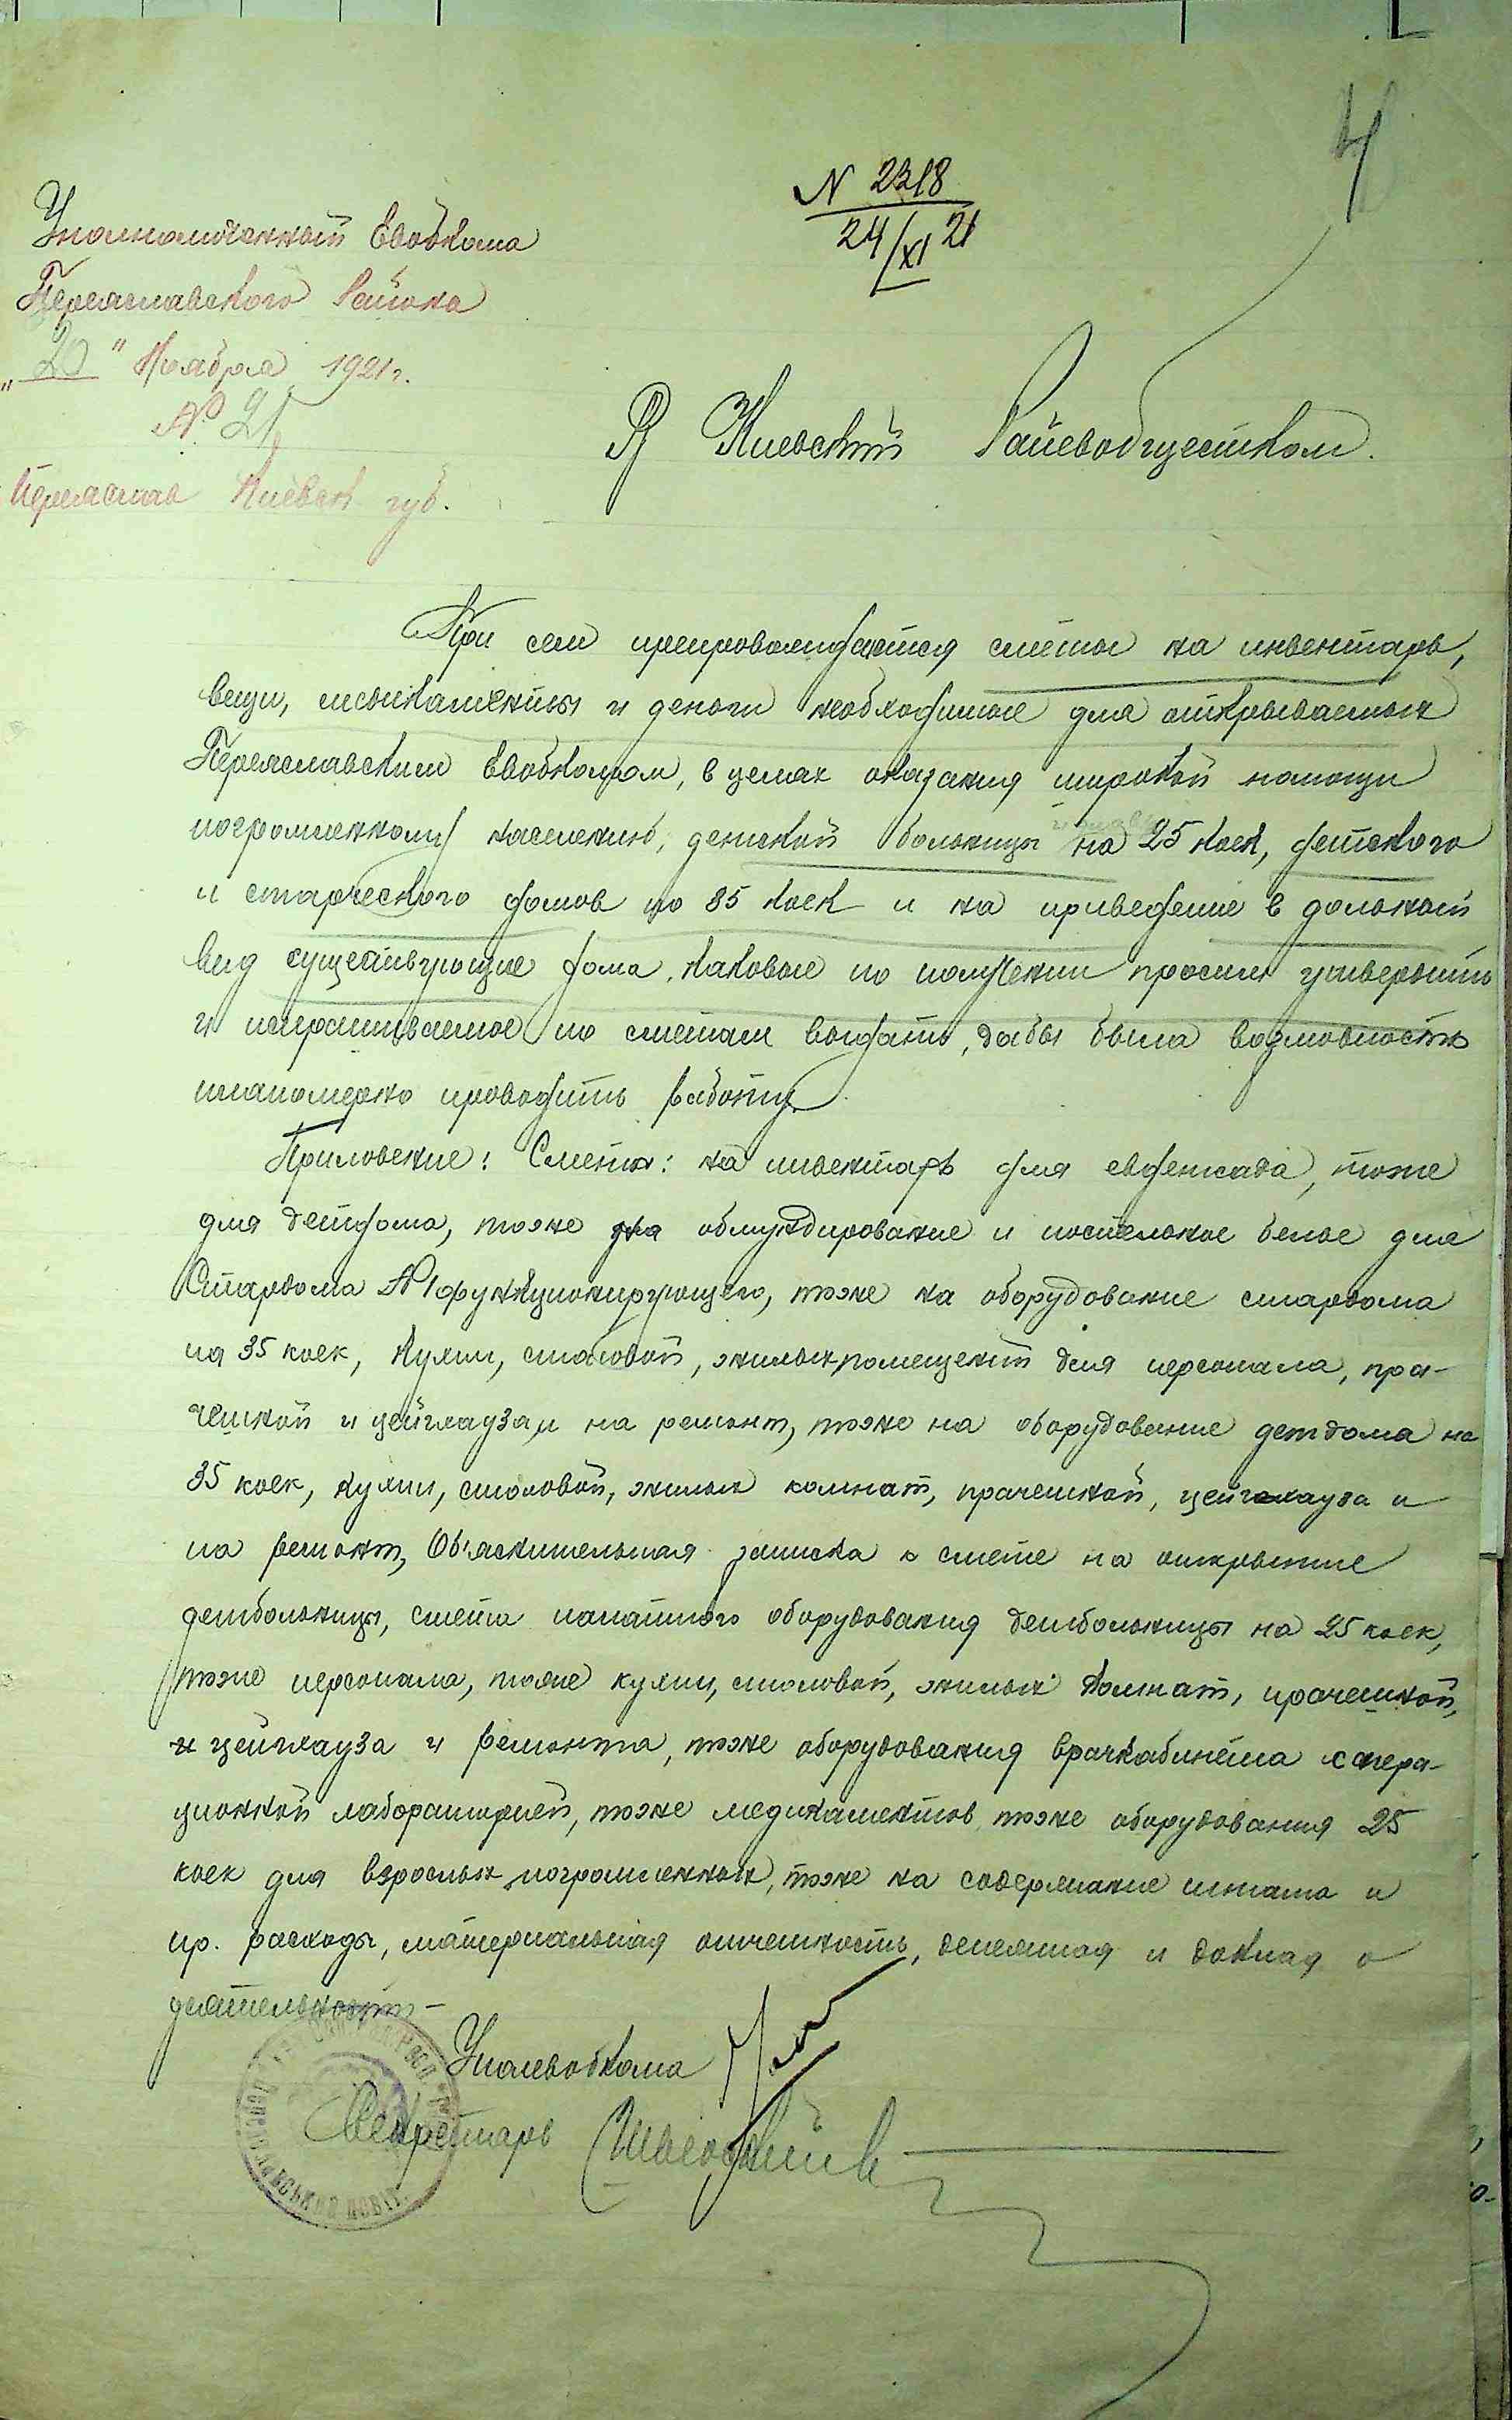 4
N 2318
24/XI 21
Уполномоченный Евобкома
Переяславского Района
"20" Ноября 1921 г.
№ 21
Переяслав Киевск. губ.
В Киевский Райевобщестком.
При сем препровождаются сметы на инвентарь,
вещи, и деньги необходимые для открываемых
Переяславским Евобкомом, в целях оказания широкой помощи
погромленному населению, детской больницы на 25 коек, детского
и старческого домов по 35 коек и на приведение в должный
вид существующие дома, каковые по получении просим утвердить
и испрашиваемое по сметам выдать, дабы была возможность
планомерно проводить работу.
Приложение: Сметы: на инвентарь для евдетсада, тоже
для детдома, тоже на обмундирование и постельное белье для
Стардома №1 функционирующего, тоже на оборудование стардома
на 35 коек, кухни, столовой, жилых помещений для персонала, пра-
чешной и цейхгауза, и на ремонт, тоже на оборудование детдома на
35 коек, кухни, столовой, жилых комнат, прачешной, цейхгауза и
на ремонт, Об'яснительная записка к смете на открытие
детбольницы, смета палатного оборудования детбольницы на 25 коек,
тоже персонала, тоже кухни, столовой, жилых комнат, прачешной,
и цейхгауза и ремонта, тоже оборудования врачкабинета с опера-
ционной лабораторией, тоже медикаментов, тоже оборудования 25
коек для взрослых погромленных, тоже на содержание штата и
пр. расходы, материальная отчетность, денежная и доклад о
деятельности –
Уполевобкома
Секретарь